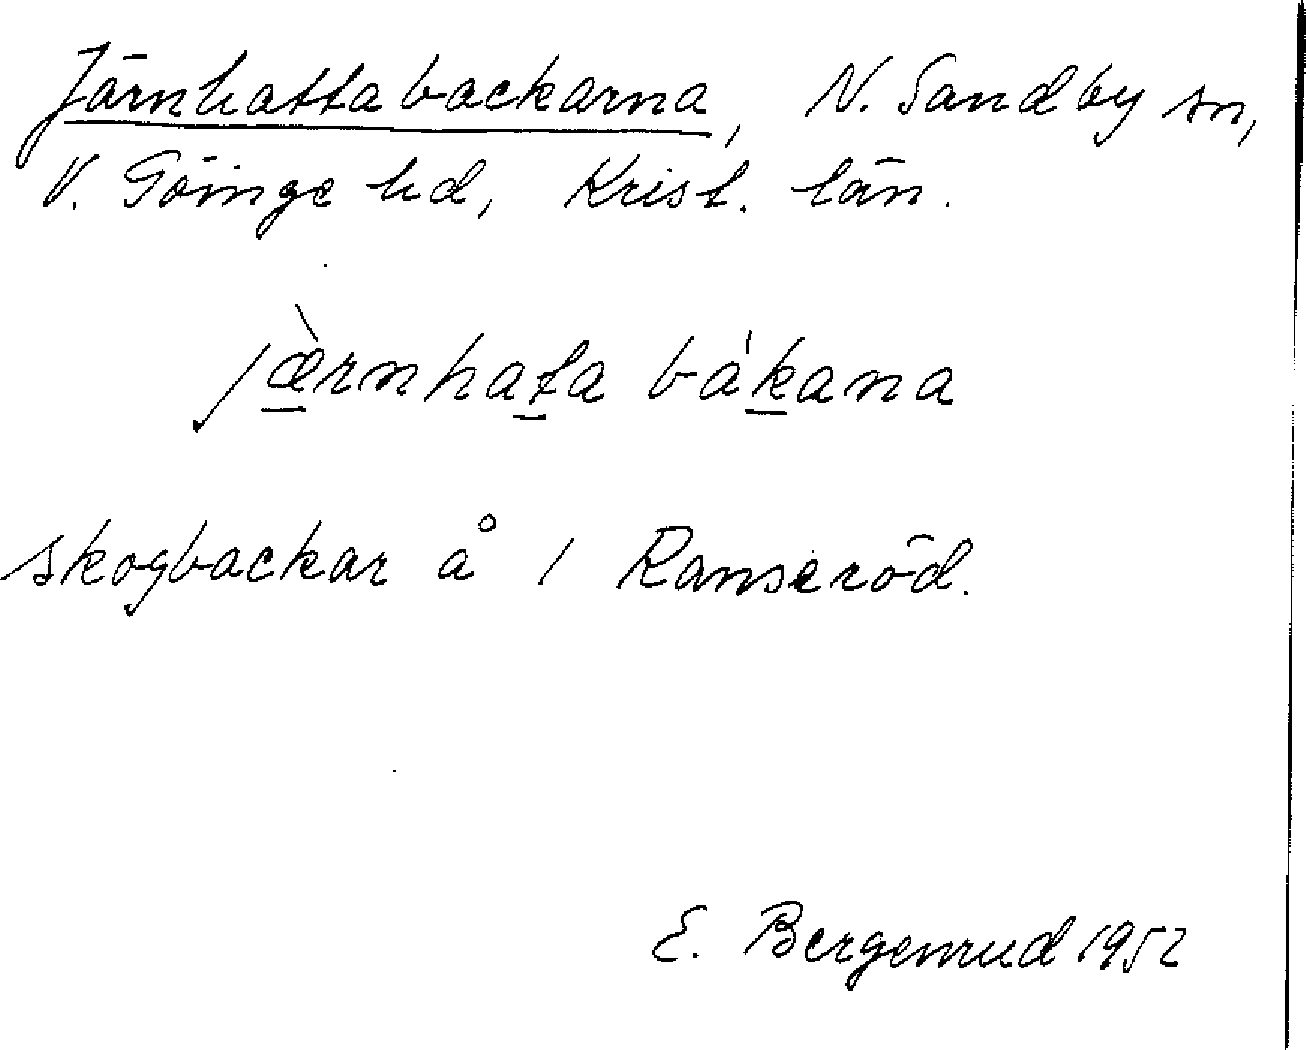 Järnhattabackarna, N. Sandby sn,
V. Göinge hd, Krist. län.
jæ̀rnhata bákana
skogbackar å 1 Ranseröd.
E. Bergenrud 1952